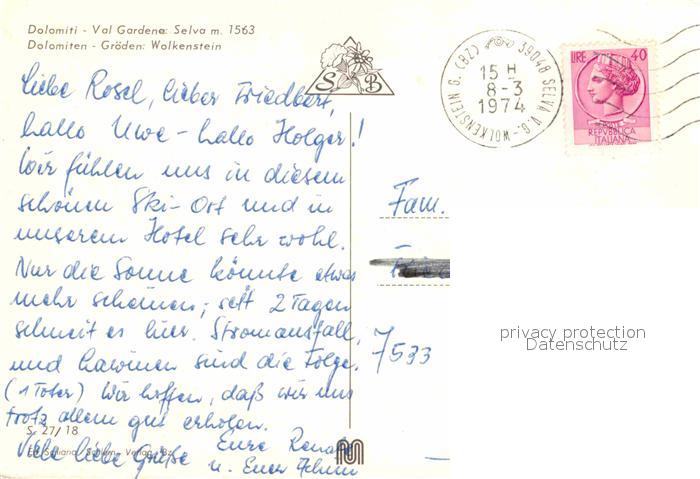 Dolomiti - Val Gardena: Selva m. 1563
Dolomiten - Gröden: Wolkenstein
S B
39048 SELVA V. G. - WOLKENSTEIN G. (BZ)
15 H
8-3
1974
LIRE 40
REPVBBLICA
ITALIANA
Liebe Rosel, lieber Friedbert,
hallo Uwe - hallo Holger!
Wir fühlen uns in diesem
schönen Ski-Ort und in
unserem Hotel sehr wohl.
Nur die Sonne könnte etwas
mehr scheinen; seit 2 Tagen
schneit es hier. Stromausfall,
und Lawinen sind die Folge.
(1 Toter) Wir hoffen, daß wir uns
trotz allem gut erholen.
Viele liebe Grüße Eure Renate
u. Euer Achim
Fam.
7533
S. 27/18
privacy protection
Datenschutz